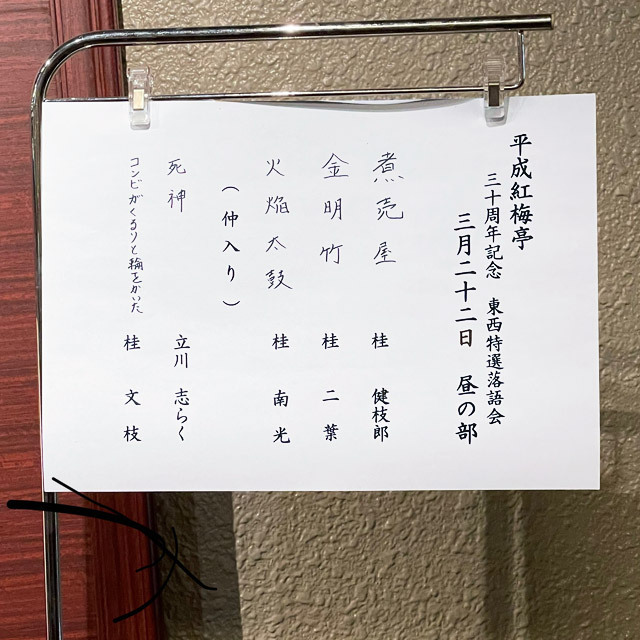 平成紅梅亭
三十周年記念 東西特選落語会
三月二十二日 昼の部
煮売屋 桂 健枝郎
金明竹 桂 二葉
火焔太鼓 桂 南光
（仲入り）
死神 立川 志らく
コンビがくるりと輪をかいた 桂 文枝